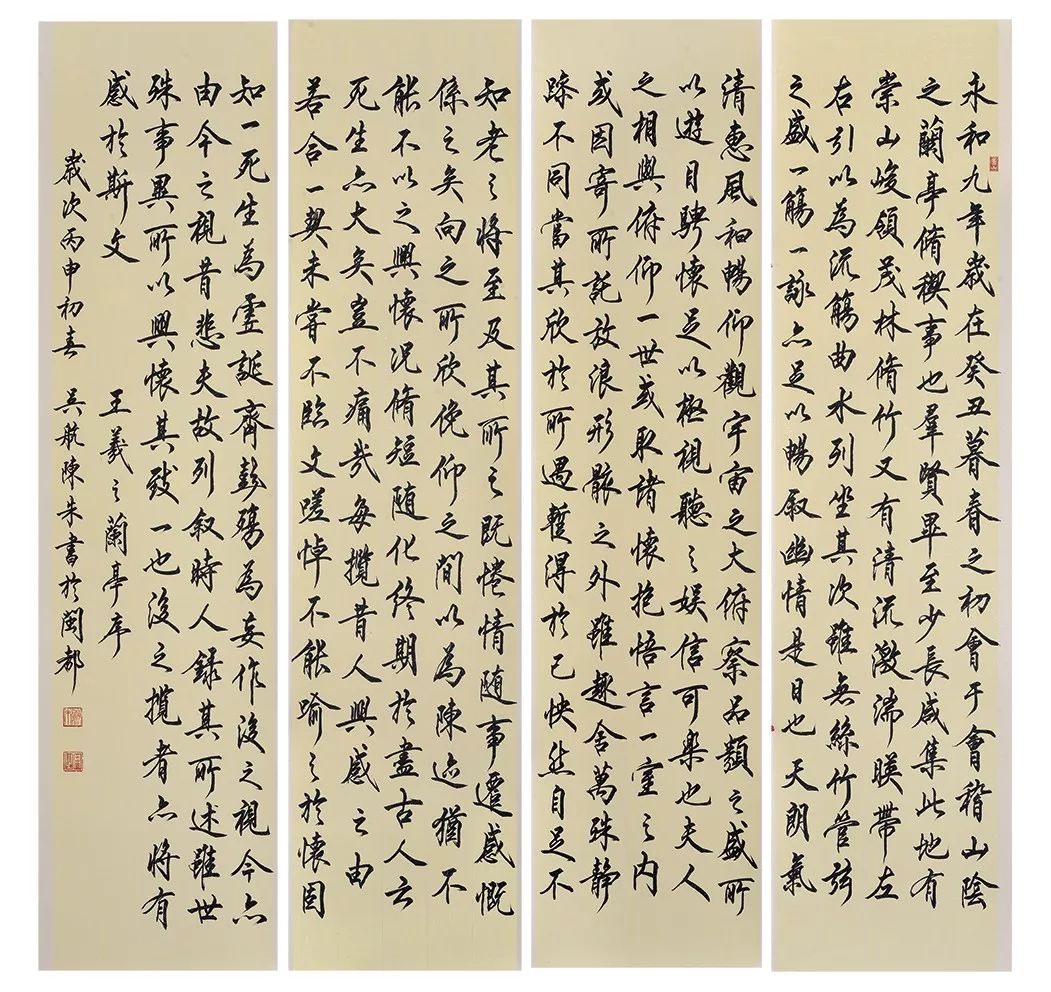 永和九年歲在癸丑暮春之初會于會稽山陰
之蘭亭脩稧事也羣賢畢至少長咸集此地有
崇山峻領茂林脩竹又有清流激湍暎帶左
右引以為流觴曲水列坐其次雖無絲竹管弦
之盛一觴一詠亦足以暢敘幽情是日也天朗氣
清惠風和暢仰觀宇宙之大俯察品類之盛所
以遊目騁懷足以極視聽之娛信可樂也夫人
之相與俯仰一世或取諸懷抱悟言一室之內
或因寄所託放浪形骸之外雖趣舍萬殊靜
躁不同當其欣於所遇蹔得於己怏然自足不
知老之將至及其所之既惓情随事遷感慨
係之矣向之所欣俛仰之間以為陳迹猶不
能不以之興懷況脩短随化終期於盡古人云
死生亦大矣豈不痛哉每攬昔人興感之由
若合一契未嘗不臨文嗟悼不能喻之於懷固
知一死生為虛誕齊彭殤為妄作後之視今亦
由今之視昔悲夫故列敘時人錄其所述雖世
殊事異所以興懷其致一也後之攬者亦將有
感於斯文 王羲之蘭亭序
歲次丙申初春 吳航陳朱書於閩都